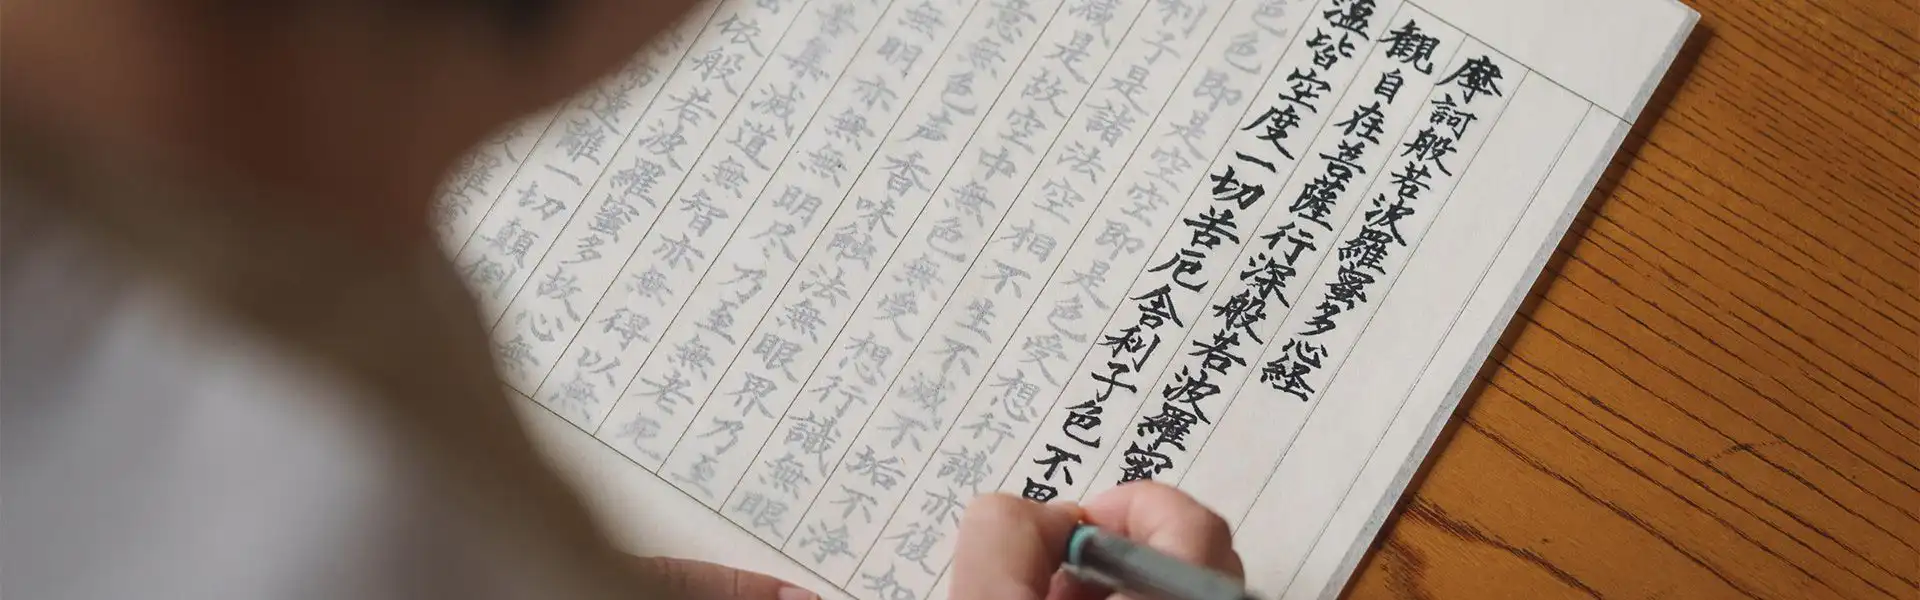 摩訶般若波羅蜜多心経
観自在菩薩行深般若波羅蜜
蘊皆空度一切苦厄舎利子色不異
色色即是空空即是色受想行識亦復如
利子是諸法空相不生不滅不垢不浄
減是故空中無色無受想行識無眼
意無色声香味触法無眼界乃至
無明亦無無明尽乃至無老死
集滅道無智亦無得以無
依般若波羅蜜多故心無
遠離一切顛倒